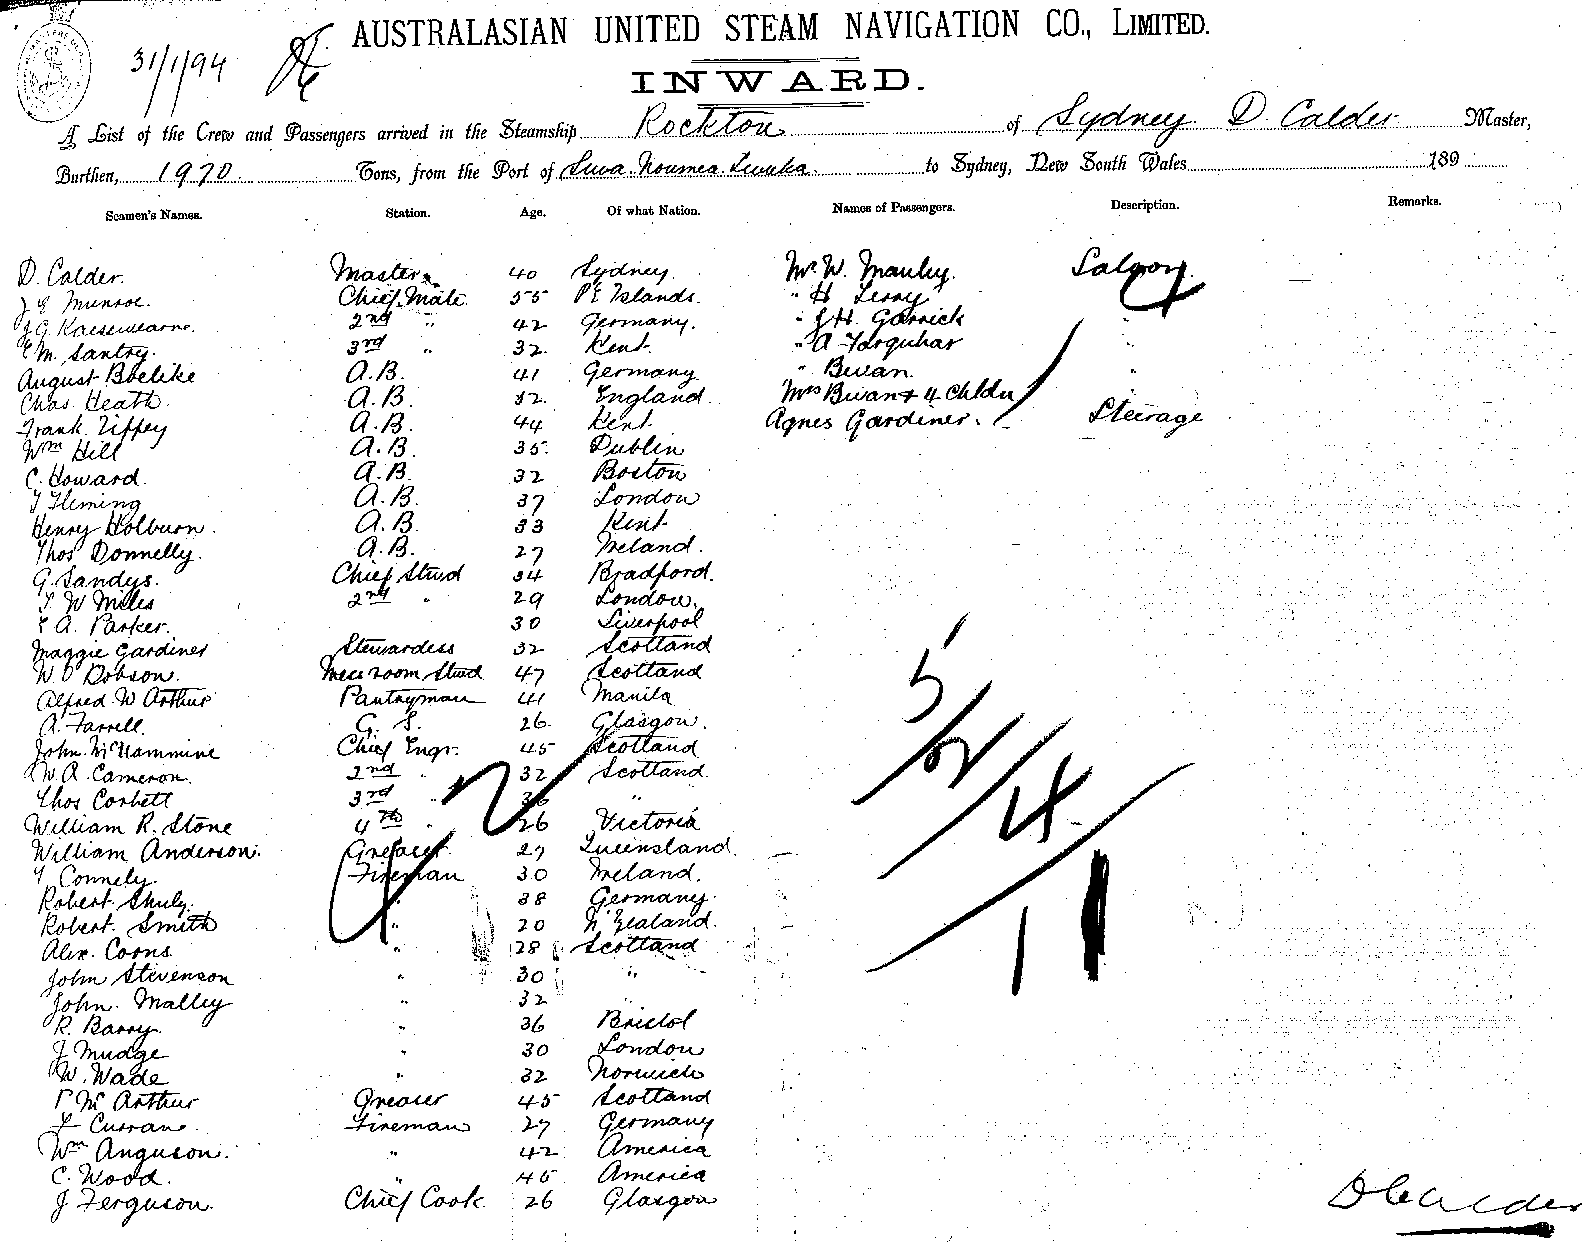 31/1/94
AUSTRALASIAN UNITED STEAM NAVIGATION CO., LIMITED.
INWARD.
A List of the Crew and Passengers arrived in the Steamship Rockton of Sydney D. Calder Master,
Burthen, 1970 Tons, from the Port of Suva. Noumea. Levuka. to Sydney, New South Wales 189
Seamen's Names. Station. Age. Of what Nation. Names of Passengers. Description. Remarks.
D. Calder. Master. 40 Sydney. Mr. W. Manley. Saloon.
J E Munroe. Chief Mate 55 P.E Islands. " H Terry "
J G 2nd " 42 Germany. " J H. Garrick "
E M. Santry. 3rd " 32. Kent. " A Farquhar "
August Boelike A.B. 41 Germany " Bevan. "
Chas. Heath. A.B. 32. England. Mrs Bevan & 4 Childn
Frank Tiffey A.B. 44 Kent. Agnes Gardiner. Steerage
Wm Hill A.B. 35. Dublin
C. Howard. A.B. 32 Boston
T Fleming A.B. 37 London
Henry Holburn. A.B. 33 Kent
Thos Donnelly. A.B. 27 Ireland.
G. Sandys. Chief Stwd 34 Bradford.
T. W Miles 2nd " 29 London.
E A. Parker. 30 Liverpool
Maggie Gardiner Stewardess 32 Scotland
W. O Dobson. Mess room Stwd 47 Scotland
Alfred W Arthur Pantryman 41 Manila
A. Farrell. G. S. 26. Glasgow.
John Chief Engr. 45 Scotland
W. A. Cameron. 2nd " 32 Scotland.
Thos Corbett 3rd " 36 "
William R. Stone 4th " 26 Victoria
William Anderson. Greaser. 27 Queensland.
T Connely. Fireman 30 Ireland.
Robert Shulz. " 38 Germany.
Robert Smith " 20 N' Zealand.
Alex. Coons. " 28 Scotland
John Stevenson " 30 "
John. Malley " 32 "
R. Barry. " 36 Bristol
J Mudge " 30 London
W. Wade " 32 Norwich
P Mc Arthur Greaser 45 Scotland
Curran. Fireman 27 Germany
Wm Anguson. " 42 America
C. Wood. " 45 America
J Ferguson. Chief Cook. 26 Glasgow
5/2/94
11
D Calder